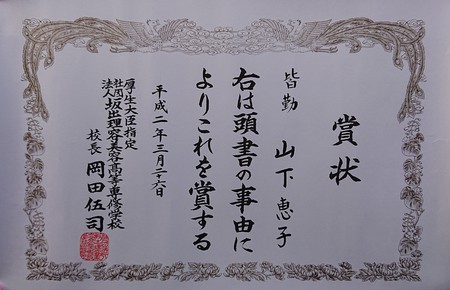 賞状
皆勤
山下恵子
右は頭書の事由に
よりこれを賞する
平成二年三月二十六日
厚生大臣指定
社団法人
坂出理容美容高等専修学校
校長 岡田伍司